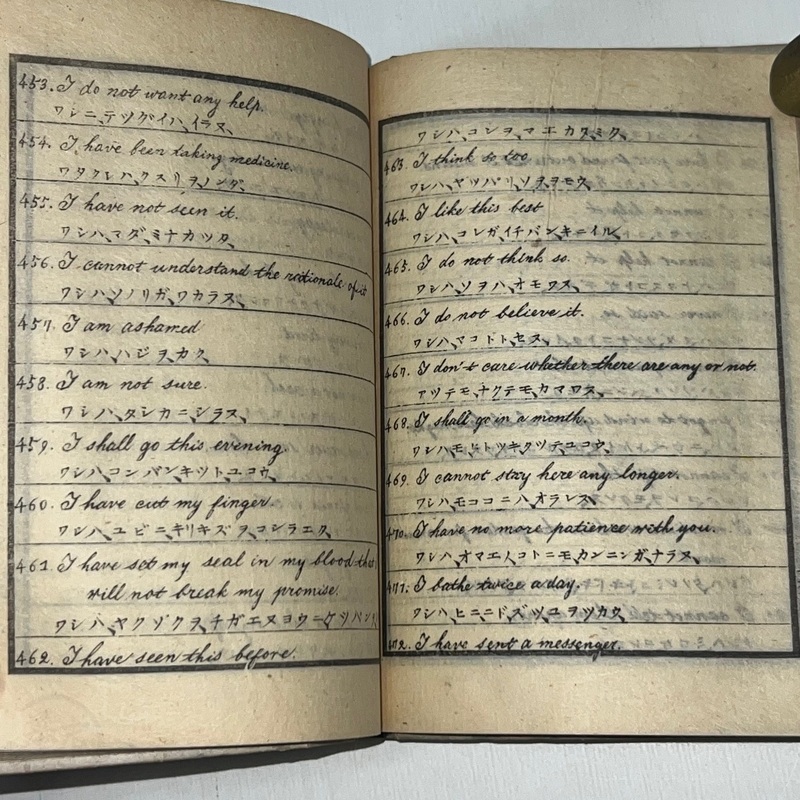 453. I do not want any help.
ワシニ、テツダイハ、イラヌ、
454. I have been taking medicine.
ワタクシハ、クスリヲ、ノンダ、
455. I have not seen it.
ワシハ、マダ、ミナカツタ
456. I cannot understand the rationale of it
ワシハ、ソノリガ、ワカラヌ、
457. I am ashamed
ワシハ、ハジヲ、カク、
458. I am not sure.
ワシハ、タシカニ、シラヌ、
459. I shall go this evening.
ワシハ、コンバンキツト、ユコウ、
460. I have cut my finger
ワシハ、ユビニ、キリキズヲ、コシラエタ、
461. I have set my seal in my blood that
will not break my promise.
ワシハ、ヤクソクヲ、チガエヌヨウニ、ケツパン
462. I have seen this before.
ワシハ、コレヲ、マエカタ、ミタ、
463. I think so too
ワシハ、ヤツパリ、ソヲヲモウ、
464. I like this best
ワシハ、コレガ、イチバン、キニイル、
465. I do not think so.
ワシハ、ソヲハ、オモワヌ、
466. I do not believe it.
ワシハ、マコトト、セヌ、
467. I don't care whether there are any or not.
アツテモ、ナクテモ、カマワヌ、
468. I shall go in a month.
ワシハ、モヒトツキタツテユコウ、
469. I cannot stay here any longer.
ワシハ、モココニハ、オラレヌ、
470. I have no more patience with you.
ワシハ、オマエノコトニモ、カンニンガ、ナラヌ、
471. I bathe twice a day.
ワシハ、ヒニニドズツユヲツカウ、
472. I have sent a messenger.